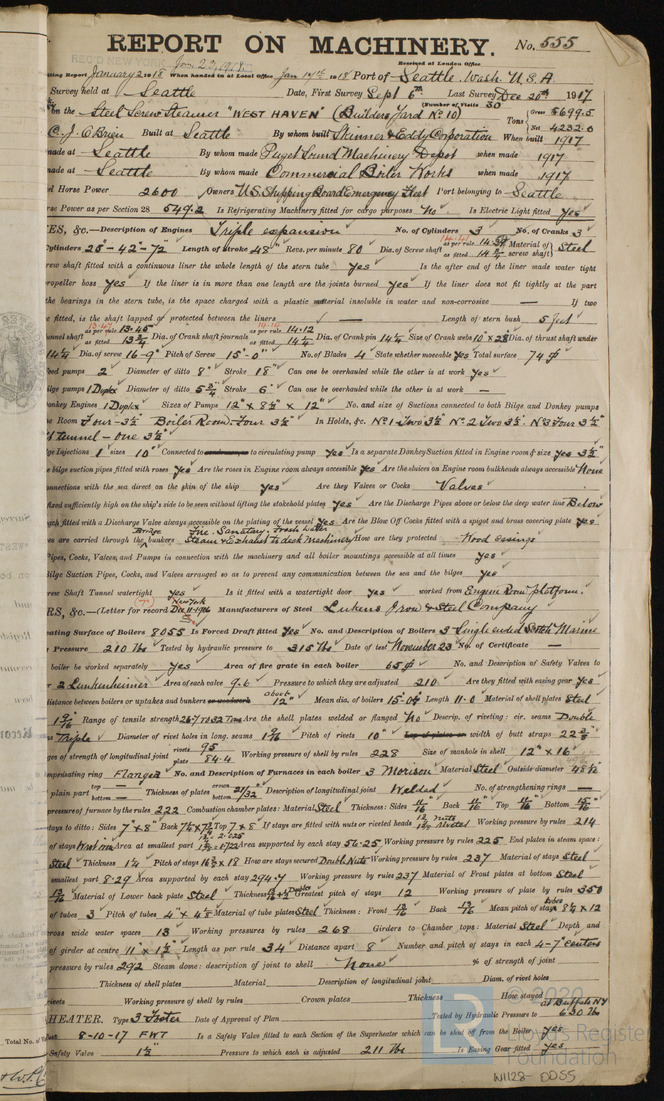 REPORT ON MACHINERY. No. 555
REC'D NEW YORK Jan 22 1918 Received at London Office
ting Report January 2 1918 When handed in at Local Office Jan 17th 1918 Port of Seattle. Wash. U.S.A
Survey held at Seattle Date, First Survey Sept 6th Last Survey Dec 20th 1917
(Number of Visits 30
on the Steel Screw Steamer "WEST HAVEN" (Builders Yard No 10) Tons { Gross 5699.5
Net 4232.0
C. J. O'Brien Built at Seattle By whom built Skinner & Eddy Corporation When built 1917
made at Seattle By whom made Puget Sound Machinery Depot when made 1917
made at Seattle By whom made Commercial Boiler Works when made 1917
l Horse Power 2600 Owners U.S. Shipping Board Emergency Fleet Port belonging to Seattle
rse Power as per Section 28 549.2 Is Refrigerating Machinery fitted for cargo purposes No Is Electric Light fitted Yes
ES, &c.—Description of Engines Triple expansion No. of Cylinders 3 No. of Cranks 3
Cylinders 28"-42"-72" Length of Stroke 48" Revs. per minute 80 Dia. of Screw shaft as per rule as fitted Material of screw shaft Steel
rew shaft fitted with a continuous liner the whole length of the stern tube Yes Is the after end of the liner made water tight
ropeller boss Yes If the liner is in more than one length are the joints burned Yes If the liner does not fit tightly at the part
the bearings in the stern tube, is the space charged with a plastic material insoluble in water and non-corrosive — If two
e fitted, is the shaft lapped or protected between the liners — Length of stern bush 5 feet
unnel shaft as per rule 13.45 as fitted 13 3/4 Dia. of Crank shaft journals as per rule 14.12 as fitted 14 1/4 Dia. of Crank pin 14 1/4 Size of Crank webs 10" x 28 Dia. of thrust shaft under
14 1/4 Dia. of screw 16-9" Pitch of Screw 15'-0" No. of Blades 4 State whether moveable Yes Total surface 74
Feed pumps 2 Diameter of ditto 8" Stroke 18" Can one be overhauled while the other is at work yes
ilge pumps 1 Duplex Diameter of ditto 5 3/4 Stroke 6" Can one be overhauled while the other is at work —
onkey Engines 1 Duplex Sizes of Pumps 12" x 8 1/2" x 12" No. and size of Suctions connected to both Bilge and Donkey pumps
e Room Four-3 1/2" Boiler Room-Four 3 1/2" In Holds, &c. No 1-Two 3 1/2" No 2-Two 3 1/2" No 3 Four 3 1/2"
tunnel-one 3 1/2"
ge Injections 1 sizes 10" Connected to to circulating pump Yes Is a separate Donkey Suction fitted in Engine room & size yes 3 1/2"
e bilge suction pipes fitted with roses Yes Are the roses in Engine room always accessible Yes Are the sluices on Engine room bulkheads always accessible None
onnections with the sea direct on the skin of the ship yes Are they Valves or Cocks Valves
ixed sufficiently high on the ship's side to be seen without lifting the stokehold plates Yes Are the Discharge Pipes above or below the deep water line Below
ach fitted with a Discharge Valve always accessible on the plating of the vessel Yes Are the Blow Off Cocks fitted with a spigot and brass covering plate yes
es are carried through the bunkers Fire. Sanitary. Fresh Water Steam & Exhaust to deck Machinery How are they protected Wood casings
Pipes, Cocks, Valves, and Pumps in connection with the machinery and all boiler mountings accessible at all times yes
Bilge Suction Pipes, Cocks, and Valves arranged so as to prevent any communication between the sea and the bilges yes
rew Shaft Tunnel watertight yes Is it fitted with a watertight door yes worked from Engine Room platform.
RS, &c.—(Letter for record New York Manufacturers of Steel Lukens Iron & Steel Company
ating Surface of Boilers 8055 Is Forced Draft fitted Yes No. and Description of Boilers 3 Single ended Scotch Marine
Pressure 210 lbs Tested by hydraulic pressure to 315 lbs Date of test November 23 No. of Certificate —
boiler be worked separately Yes Area of fire grate in each boiler 65 No. and Description of Safety Valves to
r 2 Lunkenheimer Area of each valve 9.6 Pressure to which they are adjusted 210 Are they fitted with easing gear Yes
istance between boilers or uptakes and bunkers about 12" Mean dia. of boilers 15'-0 1/2 Length 11-0 Material of shell plates Steel
1 9/16 Range of tensile strength 26.7 to 32 Tons Are the shell plates welded or flanged No Descrip. of riveting: cir. seams Double
s Triple Diameter of rivet holes in long. seams 1 9/16 Pitch of rivets 10" width of butt straps 22 3/8"
ges of strength of longitudinal joint rivets 95 plate 84.4 Working pressure of shell by rules 228 Size of manhole in shell 12" x 16"
mpensating ring Flanged No. and Description of Furnaces in each boiler 3 Morison Material Steel Outside diameter 48 1/2
plain part top — bottom — Thickness of plates crown bottom 21/32 Description of longitudinal joint Welded No. of strengthening rings —
pressure of furnace by the rules 222 Combustion chamber plates: Material Steel Thickness: Sides 11/16 Back 11/16 Top 11/16 Bottom
tays to ditto: Sides 7" x 8" Back 7 1/2 x 7 1/2 Top 7 x 8 If stays are fitted with nuts or riveted heads Working pressure by rules 214
of stays Area at smallest part Area supported by each stay 56.25 Working pressure by rules 225 End plates in steam space:
Steel Thickness 1 1/4 Pitch of stays 16 3/8 x 18 How are stays secured Double Nuts Working pressure by rules 237 Material of stays Steel
smallest part 8.29 Area supported by each stay 294.7 Working pressure by rules 237 Material of Front plates at bottom Steel
13/16 Material of Lower back plate Steel Thickness Greatest pitch of stays 12 Working pressure of plate by rules 350
of tubes 3 Pitch of tubes 4" x 4 1/8 Material of tube plates Steel Thickness: Front 13/16 Back 13/16 Mean pitch of stays 8 1/4 x 12
cross wide water spaces 13 Working pressures by rules 268 Girders to Chamber tops: Material Steel Depth and
of girder at centre 11" x 1 1/2 Length as per rule 34 Distance apart 8 Number and pitch of stays in each 4-7" centers
pressure by rules 292 Steam dome: description of joint to shell None % of strength of joint
Thickness of shell plates Material Description of longitudinal joint Diam. of rivet holes
rivets Working pressure of shell by rules Crown plates Thickness How stayed
at Buffalo NY
HEATER. Type 3 Foster Date of Approval of Plan Tested by Hydraulic Pressure to 630 lbs
8-10-17 FWT Is a Safety Valve fitted to each Section of the Superheater which can be shut off from the Boiler Yes
Safety Valve 1 1/2" Pressure to which each is adjusted 211 lbs Is Easing Gear fitted yes
© 2020
Lloyd's Register
Foundation
W1128-0055
Total No. of